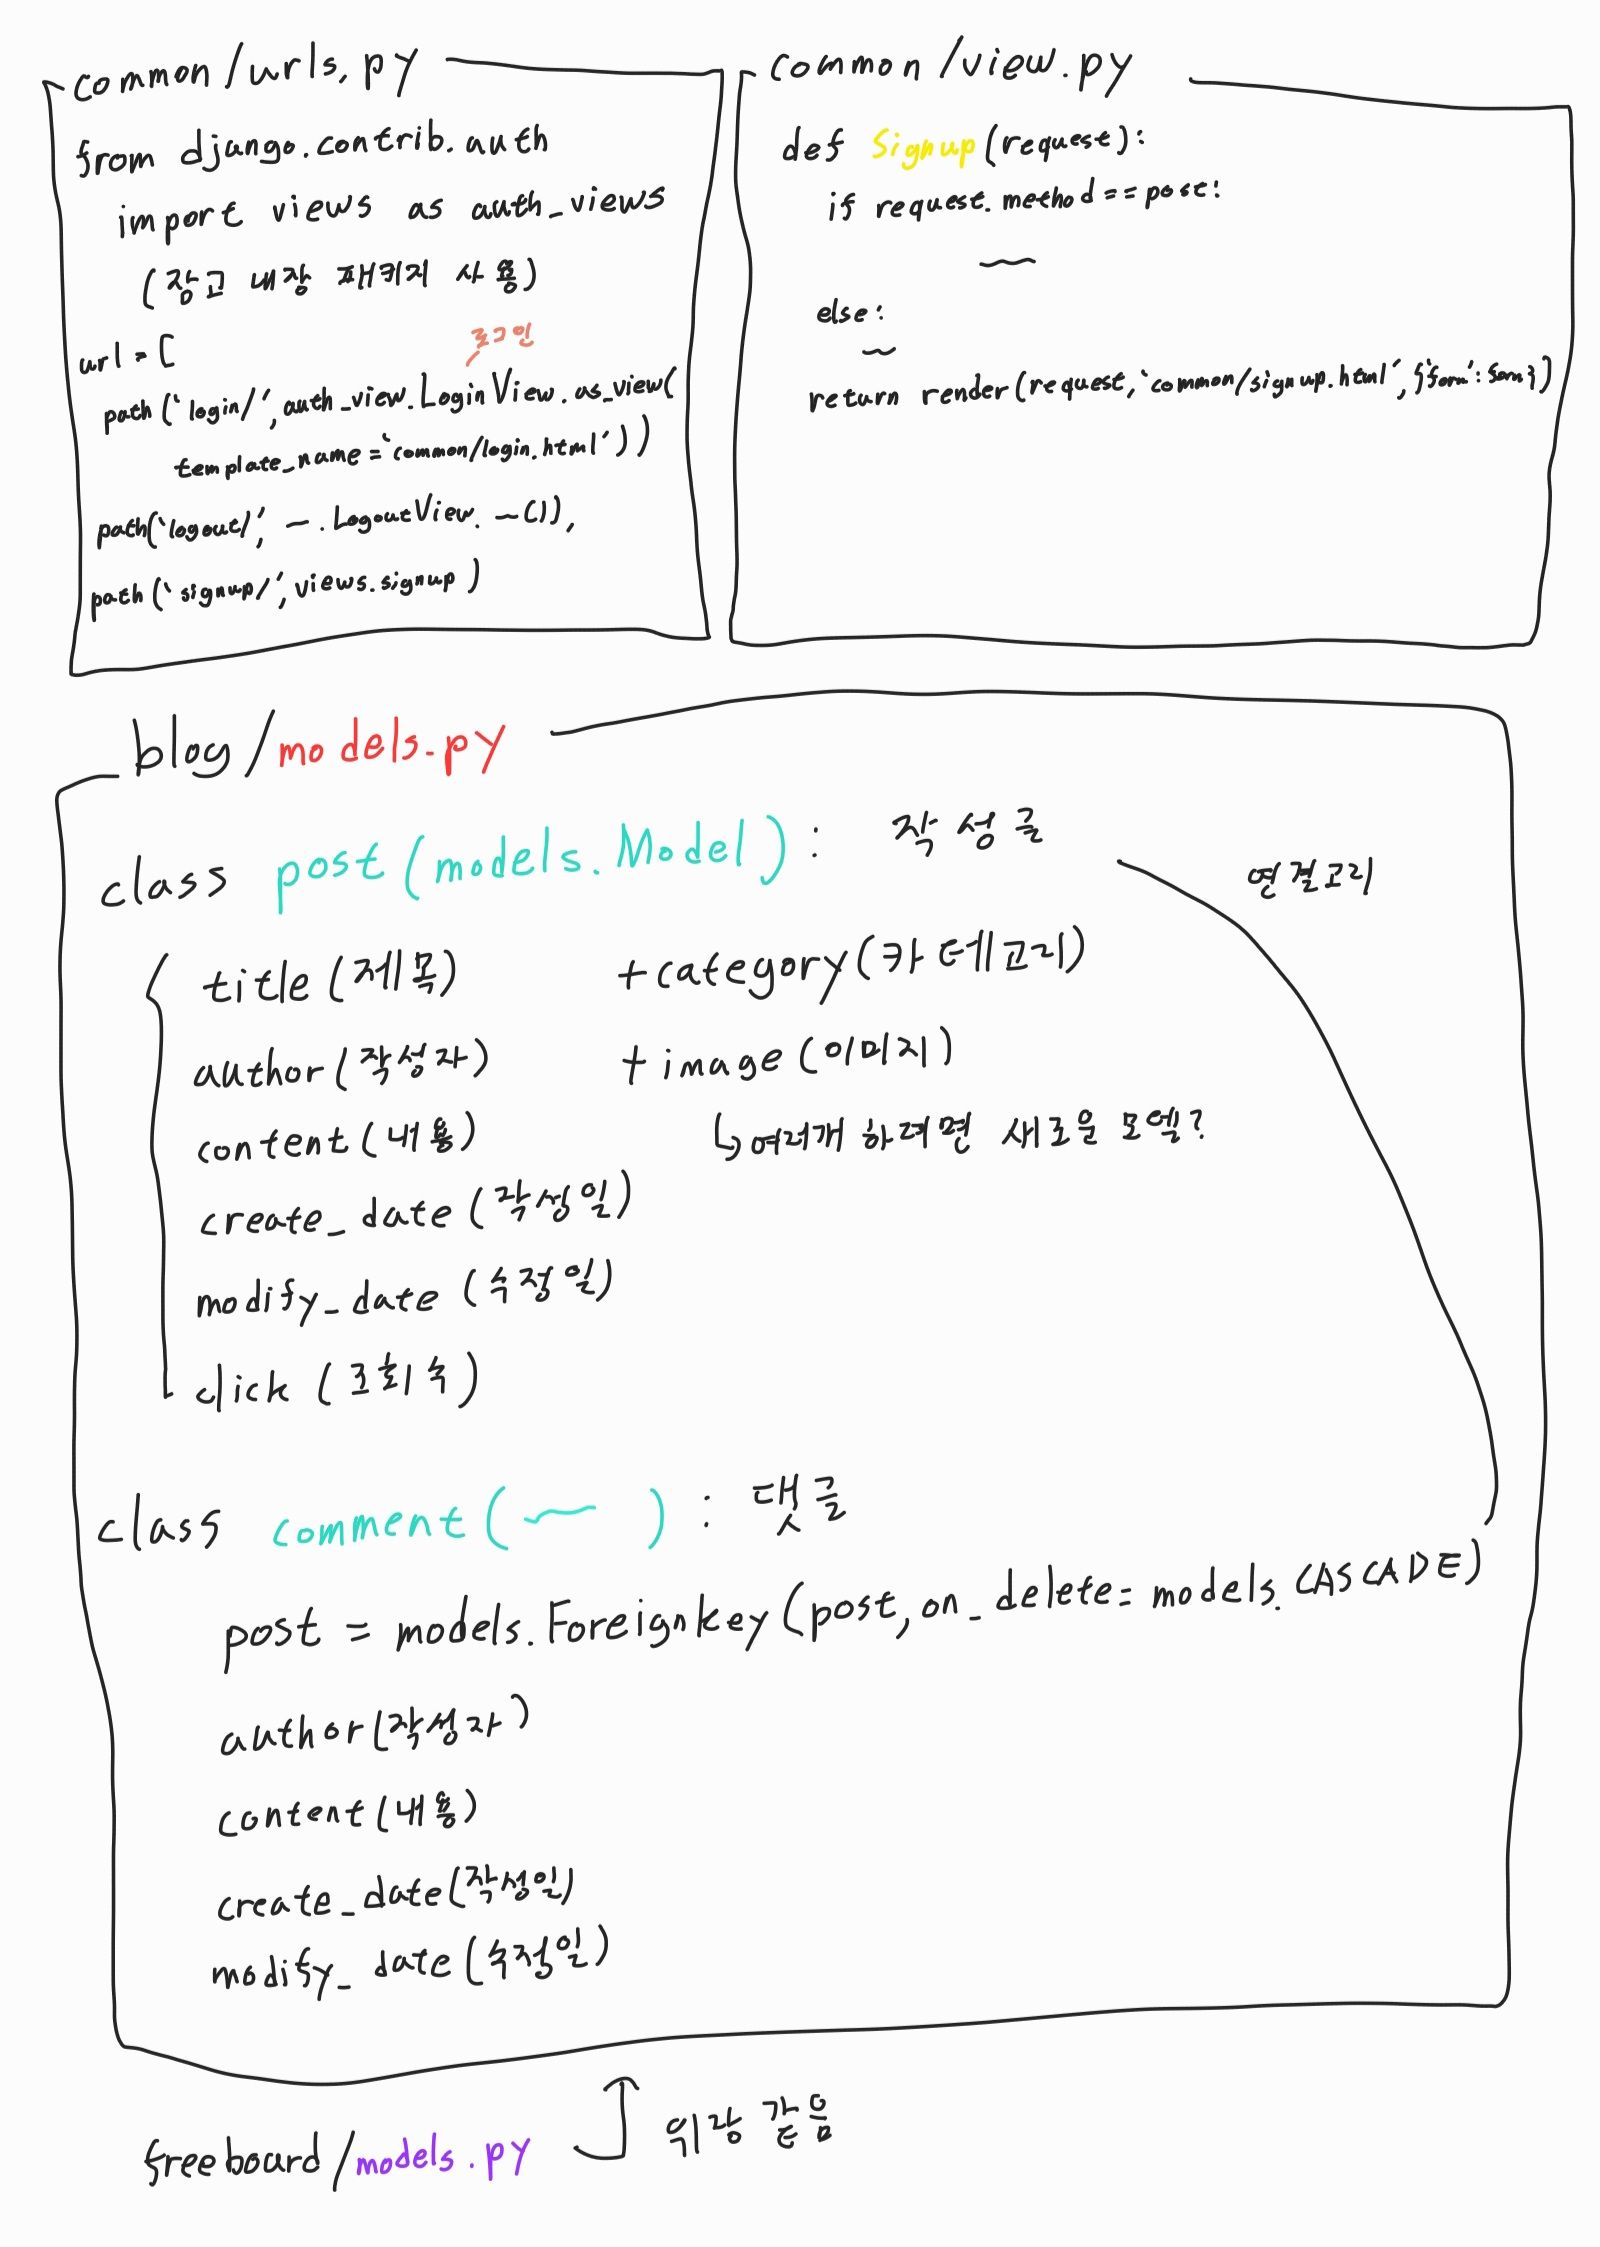 common/urls.py
from django.contrib.auth
import views as auth_views
(장고 내장 패키지 사용)
로그인
url = [
path('login/', auth_view.LoginView.as_view(
template_name='common/login.html'))
path('logout/', ~.LogoutView.~()),
path('signup/', views.signup)
common/view.py
def Signup(request):
if request.method == post:
~
else:
~
return render(request, 'common/signup.html', {'form':form})
blog/models.py
class post(models.Model): 작성글
연결고리
title(제목)
author(작성자)
content(내용)
create_date(작성일)
modify_date(수정일)
click(조회수)
+category(카테고리)
+image(이미지)
↳여러개 하려면 새로운 모델?
class comment(~): 댓글
post = models.Foreignkey(post, on_delete=models.CASCADE)
author(작성자)
content(내용)
create_date(작성일)
modify_date(수정일)
freeboard/models.py
위랑 같음